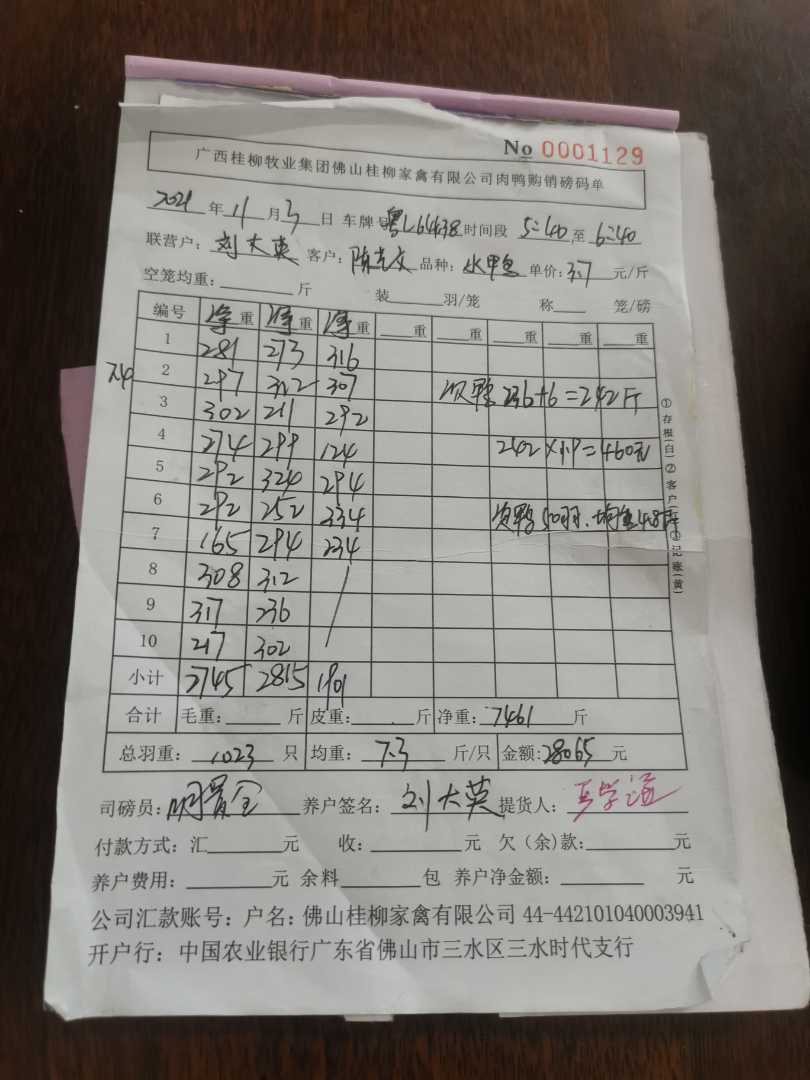 No 0001129
广西桂柳牧业集团佛山桂柳家禽有限公司肉鸭购销磅码单
2021 年 11 月 3 日 车牌号 粤L64438 时间段 5:40 至 6:40
联营户: 刘大英 客户: 品种: 水甲鸭 单价: 3.7 元/斤
空笼均重: 斤 装 羽/笼 称 笼/磅
编号 净重 净重 净重 重 重 重 重 重
1 281 273 316
2 297 322 307 次鸭 236+6=242斤
3 302 211 292
4 274 299 124 242×1.9=460元
5 292 324 294
6 292 252 334 次鸭50羽. 均重4.8斤
7 165 294 234
8 308 312
9 317 236
10 217 302
小计 2745 2815 1901
合计 毛重: 斤 皮重: 斤 净重: 7461 斤
总羽重: 1023 只 均重: 7.3 斤/只 金额: 28065 元
司磅员: 养户签名: 刘大英 提货人:
付款方式: 汇 元 收: 元 欠(余)款: 元
养户费用: 元 余料 包 养户净金额: 元
公司汇款账号: 户名: 佛山桂柳家禽有限公司 44-442101040003941
开户行: 中国农业银行广东省佛山市三水区三水时代支行
①存根(白)②客户(红)③记账(黄)